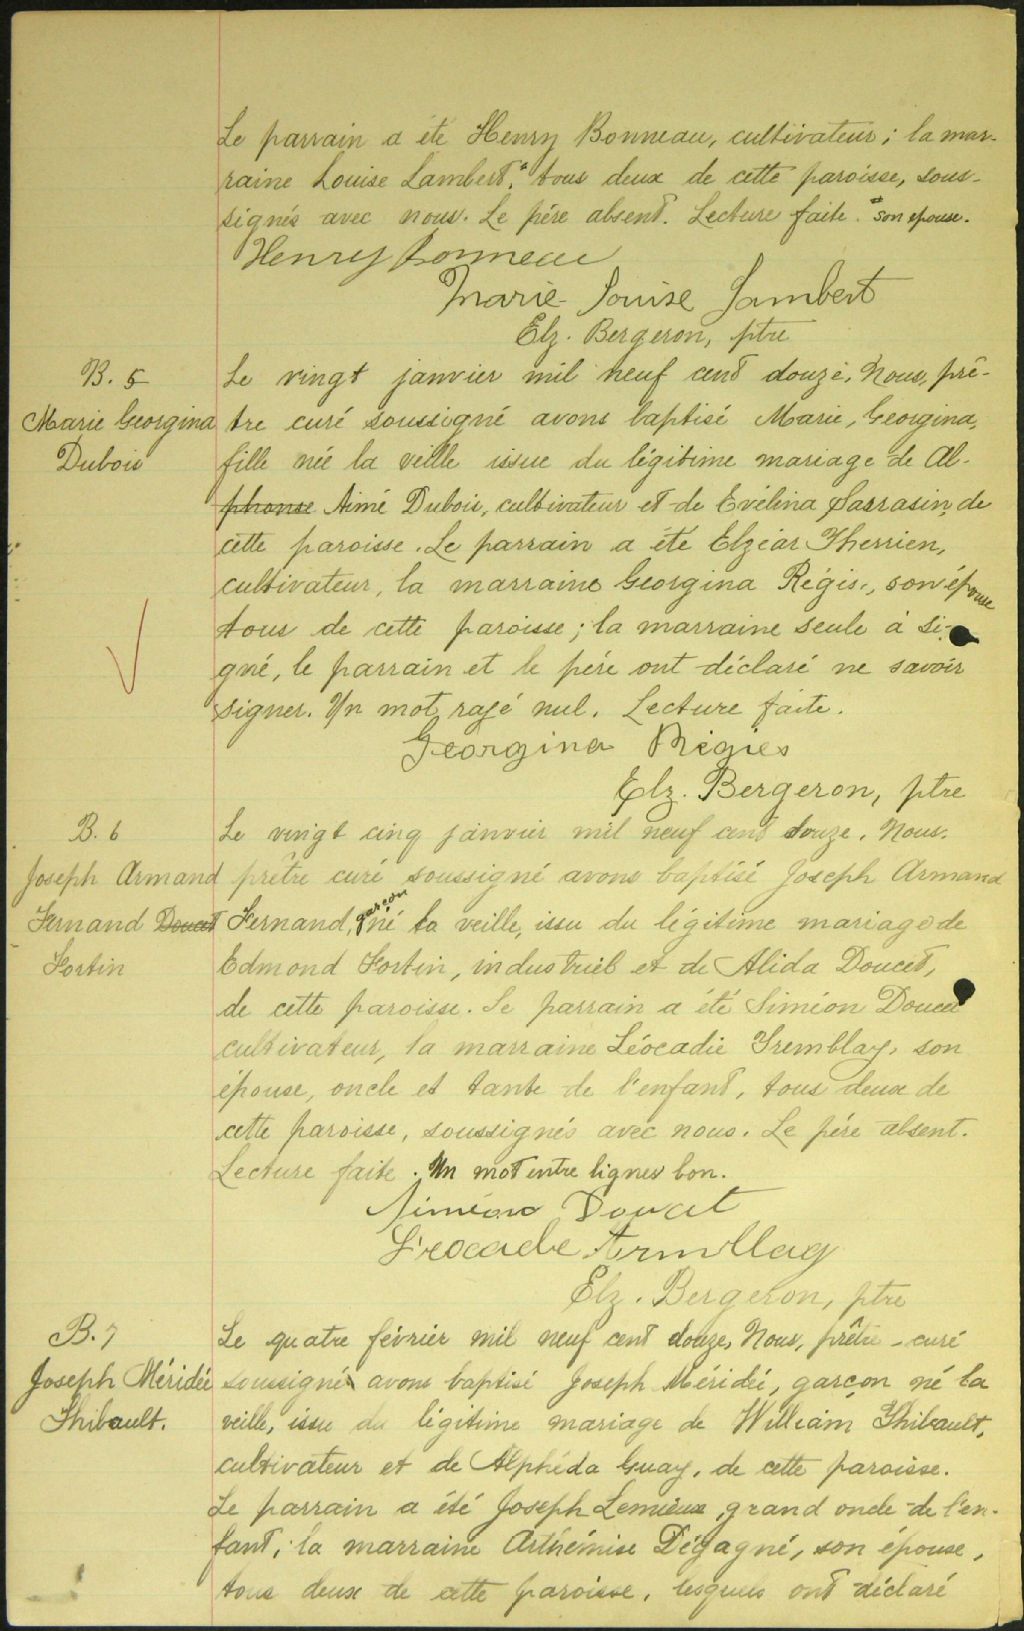 Le parrain a été Henry Bonneau, cultivateur; la mar-
raine Louise Lambert,* tous deux de cette paroisse, sous-
signés avec nous. Le père absent. Lecture faite. *son épouse.
Henry Bonneau
Marie-Louise Lambert
Elz. Bergeron, ptre
B. 5
Marie Georgina
Dubois
Le vingt janvier mil neuf cent douze, Nous, prê-
tre curé soussigné avons baptisé Marie, Georgina,
fille née la veille issue du légitime mariage de Al-
phonse Aimé Dubois, cultivateur et de Evélina Sarrasin, de
cette paroisse. Le parrain a été Elzéar Therrien,
cultivateur, la marraine Georgina Régis, son épouse
tous de cette paroisse; la marraine seule a si-
gné, le parrain et le père ont déclaré ne savoir
signer. Un mot rayé nul. Lecture faite.
Georgina Régies
Elz. Bergeron, ptre
B. 6
Joseph Armand
Fernand Doucet
Fortin
Le vingt cinq janvier mil neuf cent douze, Nous,
prêtre curé soussigné avons baptisé Joseph Armand
Fernand, garçon né la veille, issu du légitime mariage de
Edmond Fortin, industriel et de Alida Doucet,
de cette paroisse. Le parrain a été Siméon Doucet
cultivateur, la marraine Léocadie Tremblay, son
épouse, oncle et tante de l'enfant, tous deux de
cette paroisse, soussignés avec nous. Le père absent.
Lecture faite. Un mot entre lignes bon.
Siméon Doucet
Elz. Bergeron, ptre
B. 7
Joseph Méridée
Thibault.
Le quatre février mil neuf cent douze, Nous, prêtre-curé
soussigné avons baptisé Joseph Méridée, garçon né la
veille, issu du légitime mariage de William Thibault,
cultivateur et de Alphéda Guay, de cette paroisse.
Le parrain a été Joseph Lemieux, grand oncle de l'en-
fant, la marraine Arthémise Dégagné, son épouse,
tous deux de cette paroisse, lesquels ont déclaré